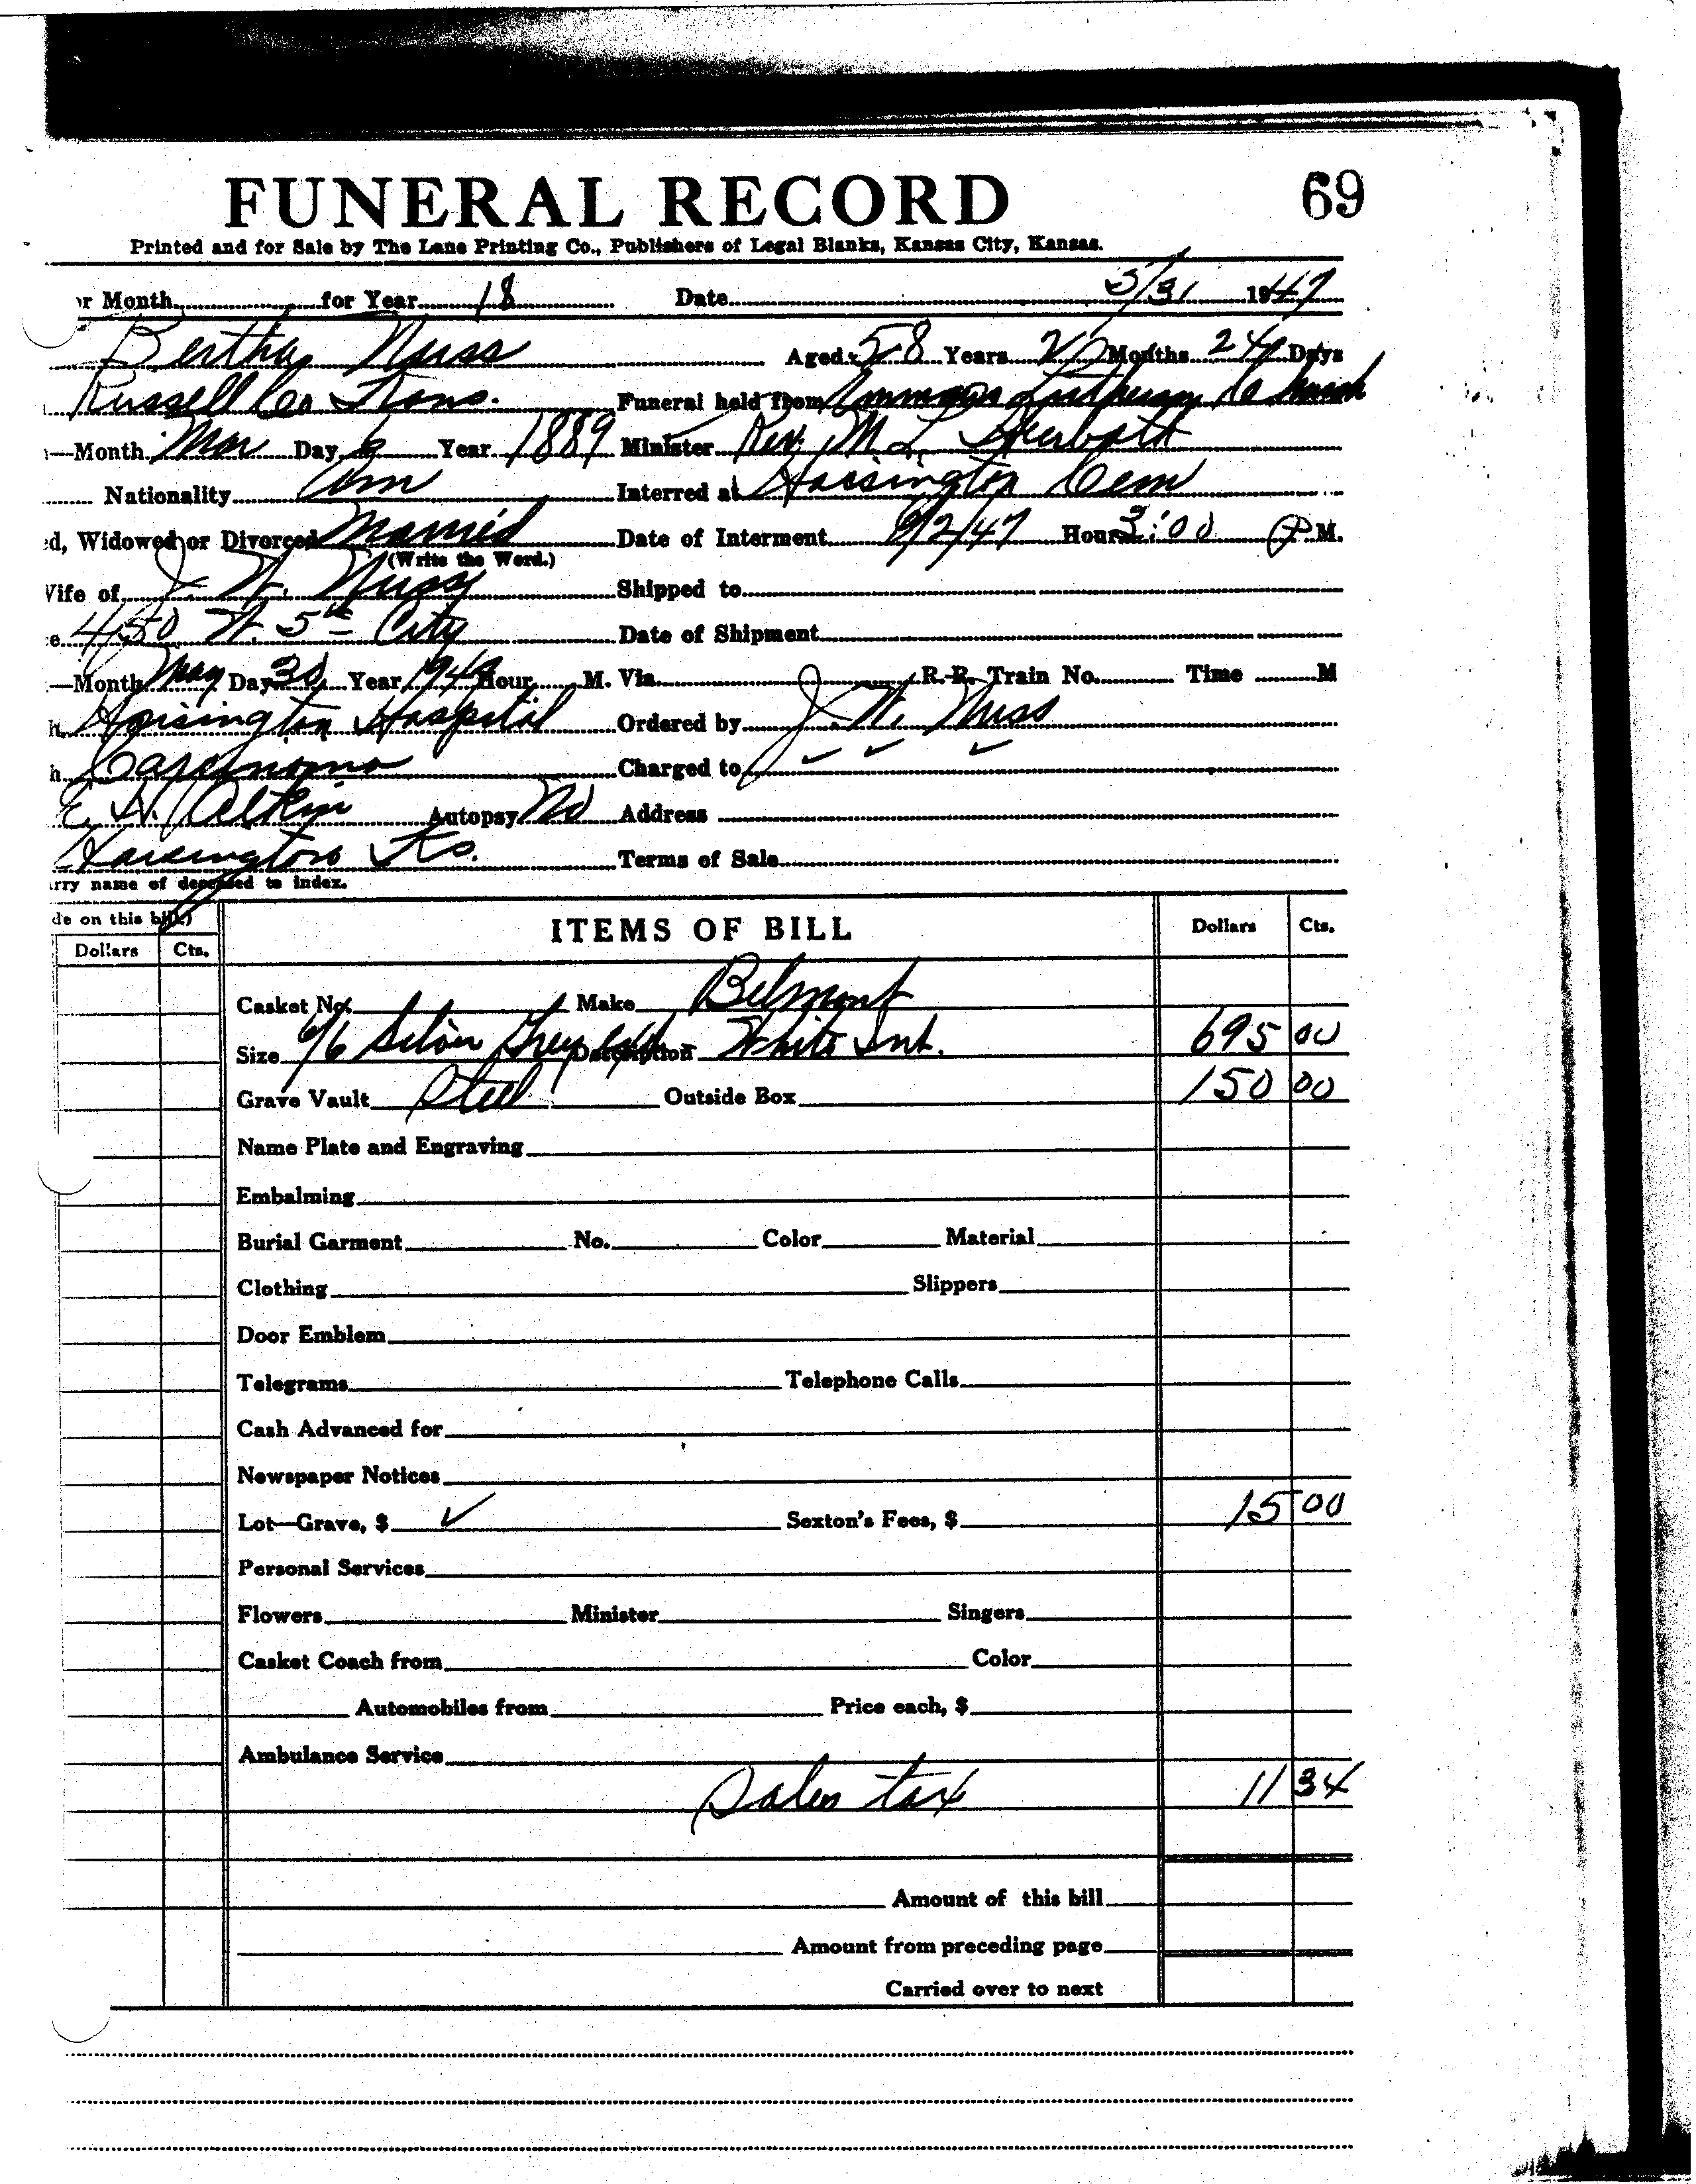 FUNERAL RECORD 69
Printed and for Sale by The Lane Printing Co., Publishers of Legal Blanks, Kansas City, Kansas.
or Month for Year 18 Date 5/31 1947
Bertha Nuss Aged 58 Years 2 Months 24 Days
Russell Co Kans. Funeral held from Lutheran Church
—Month Mar Day 6 Year 1889 Minister Rev. M. L.
Nationality Am Interred at Hoisington Cem
ed, Widowed or Divorced Married Date of Interment 6/2/47 Hour 3:00 P M.
(Write the Word.)
Wife of J. W. Nuss Shipped to
e 450 W. 5th City Date of Shipment
—Month May Day 30 Year 194 Hour M. Via R.R. Train No. Time M
h. Hoisington Hospital Ordered by J. W. Nuss
h. Carcinoma Charged to ✓ ✓ ✓
E. N. Autopsy No Address
Hoisington Ks. Terms of Sale
rry name of deceased to index.
de on this bill.)
Dollars Cts. ITEMS OF BILL Dollars Cts.
Casket No. Make Belmont
Size 6/6 Silver Grey Description White Int. 695 00
Grave Vault Steel Outside Box 150 00
Name Plate and Engraving
Embalming
Burial Garment No. Color Material
Clothing Slippers
Door Emblem
Telegrams Telephone Calls
Cash Advanced for
Newspaper Notices
Lot—Grave, $ ✓ Sexton's Fees, $ 15 00
Personal Services
Flowers Minister Singers
Casket Coach from Color
Automobiles from Price each, $
Ambulance Service
Sales tax 11 34
Amount of this bill
Amount from preceding page
Carried over to next